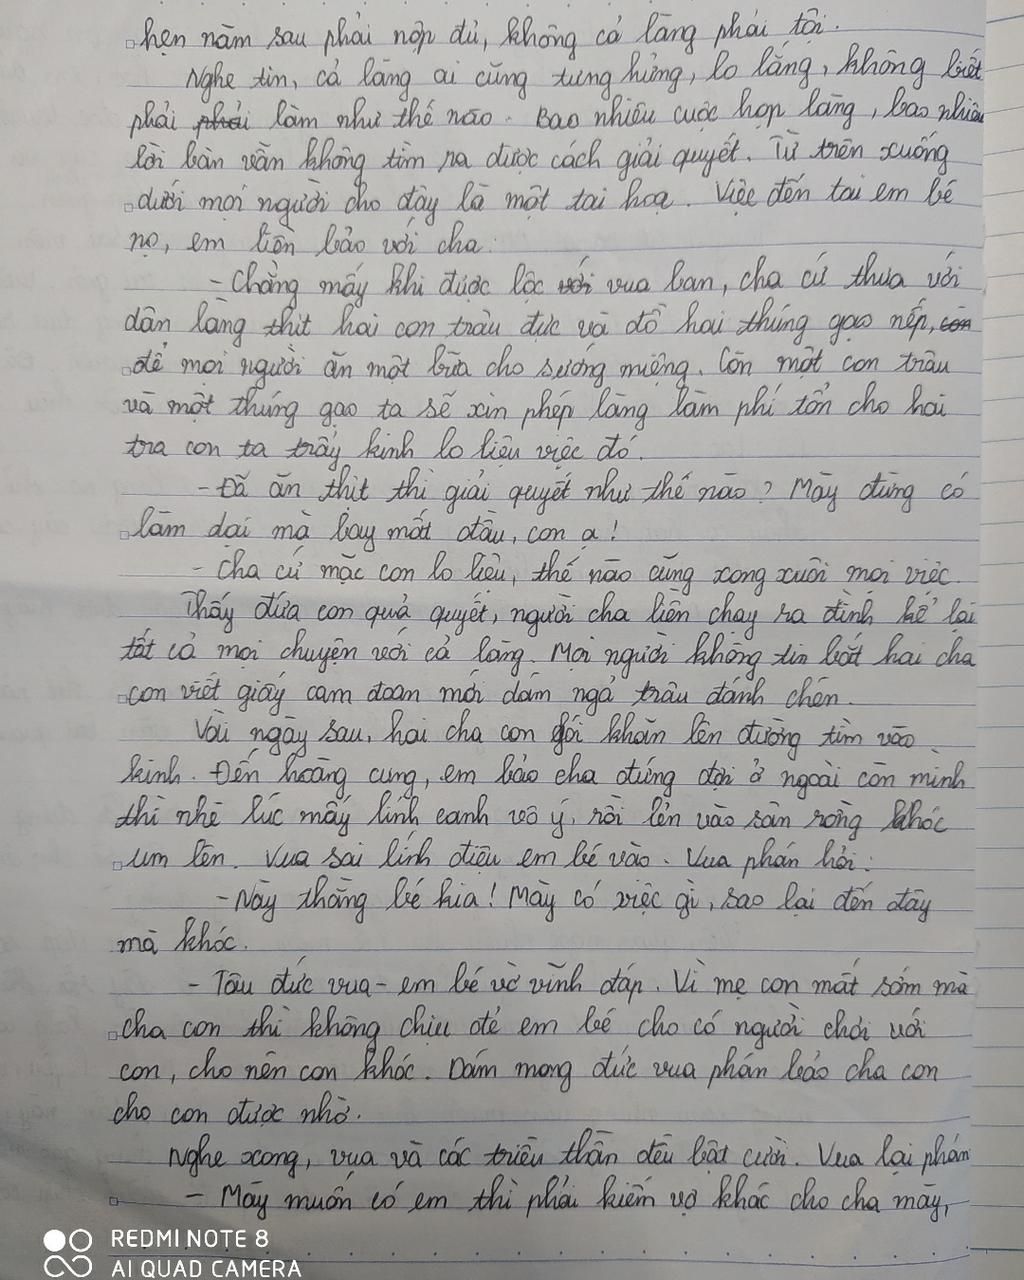 hẹn năm sau phải nộp đủ, không cả làng phải tội.
Nghe tin, cả làng ai cũng tưng hửng, lo lắng, không biết
phải phải làm như thế nào. Bao nhiêu cuộc họp làng, bao nhiêu
lời bàn vẫn không tìm ra được cách giải quyết. Từ trên xuống
dưới mọi người cho đây là một tai hoạ. Việc đến tai em bé
nọ, em liền bảo với cha:
- Chẳng mấy khi được lộc với vua ban, cha cứ thưa với
dân làng thịt hai con trâu đực và đồ hai thúng gạo nếp, còn
để mọi người ăn một bữa cho sướng miệng. Còn một con trâu
và một thúng gạo ta sẽ xin phép làng làm phí tổn cho hai
tra con ta trẩy kinh lo liệu việc đó.
- Đã ăn thịt thì giải quyết như thế nào? Mày đừng có
làm dại mà bay mất đầu, con ạ!
- Cha cứ mặc con lo liệu, thế nào cũng xong xuôi mọi việc.
Thấy đứa con quả quyết, người cha liền chạy ra đình kể lại
tất cả mọi chuyện với cả làng. Mọi người không tin bắt hai cha
con viết giấy cam đoan mới dám ngả trâu đánh chén.
Vài ngày sau, hai cha con gói khăn lên đường tìm vào
kinh. Đến hoàng cung, em bảo cha đứng đợi ở ngoài còn mình
thì nhè lúc mấy lính canh vô ý, rồi lẻn vào sân rồng khóc
um lên. Vua sai lính điệu em bé vào. Vua phán hỏi:
- Này thằng bé kia! Mày có việc gì, sao lại đến đây
mà khóc.
- Tâu đức vua - em bé vờ vĩnh đáp. Vì mẹ con mất sớm mà
cha con thì không chịu đẻ em bé cho có người chơi với
con, cho nên con khóc. Dám mong đức vua phán bảo cha con
cho con được nhờ.
Nghe xong, vua và các triều thần đều bật cười. Vua lại phán
- Mày muốn có em thì phải kiếm vợ khác cho cha mày,
REDMI NOTE 8
AI QUAD CAMERA